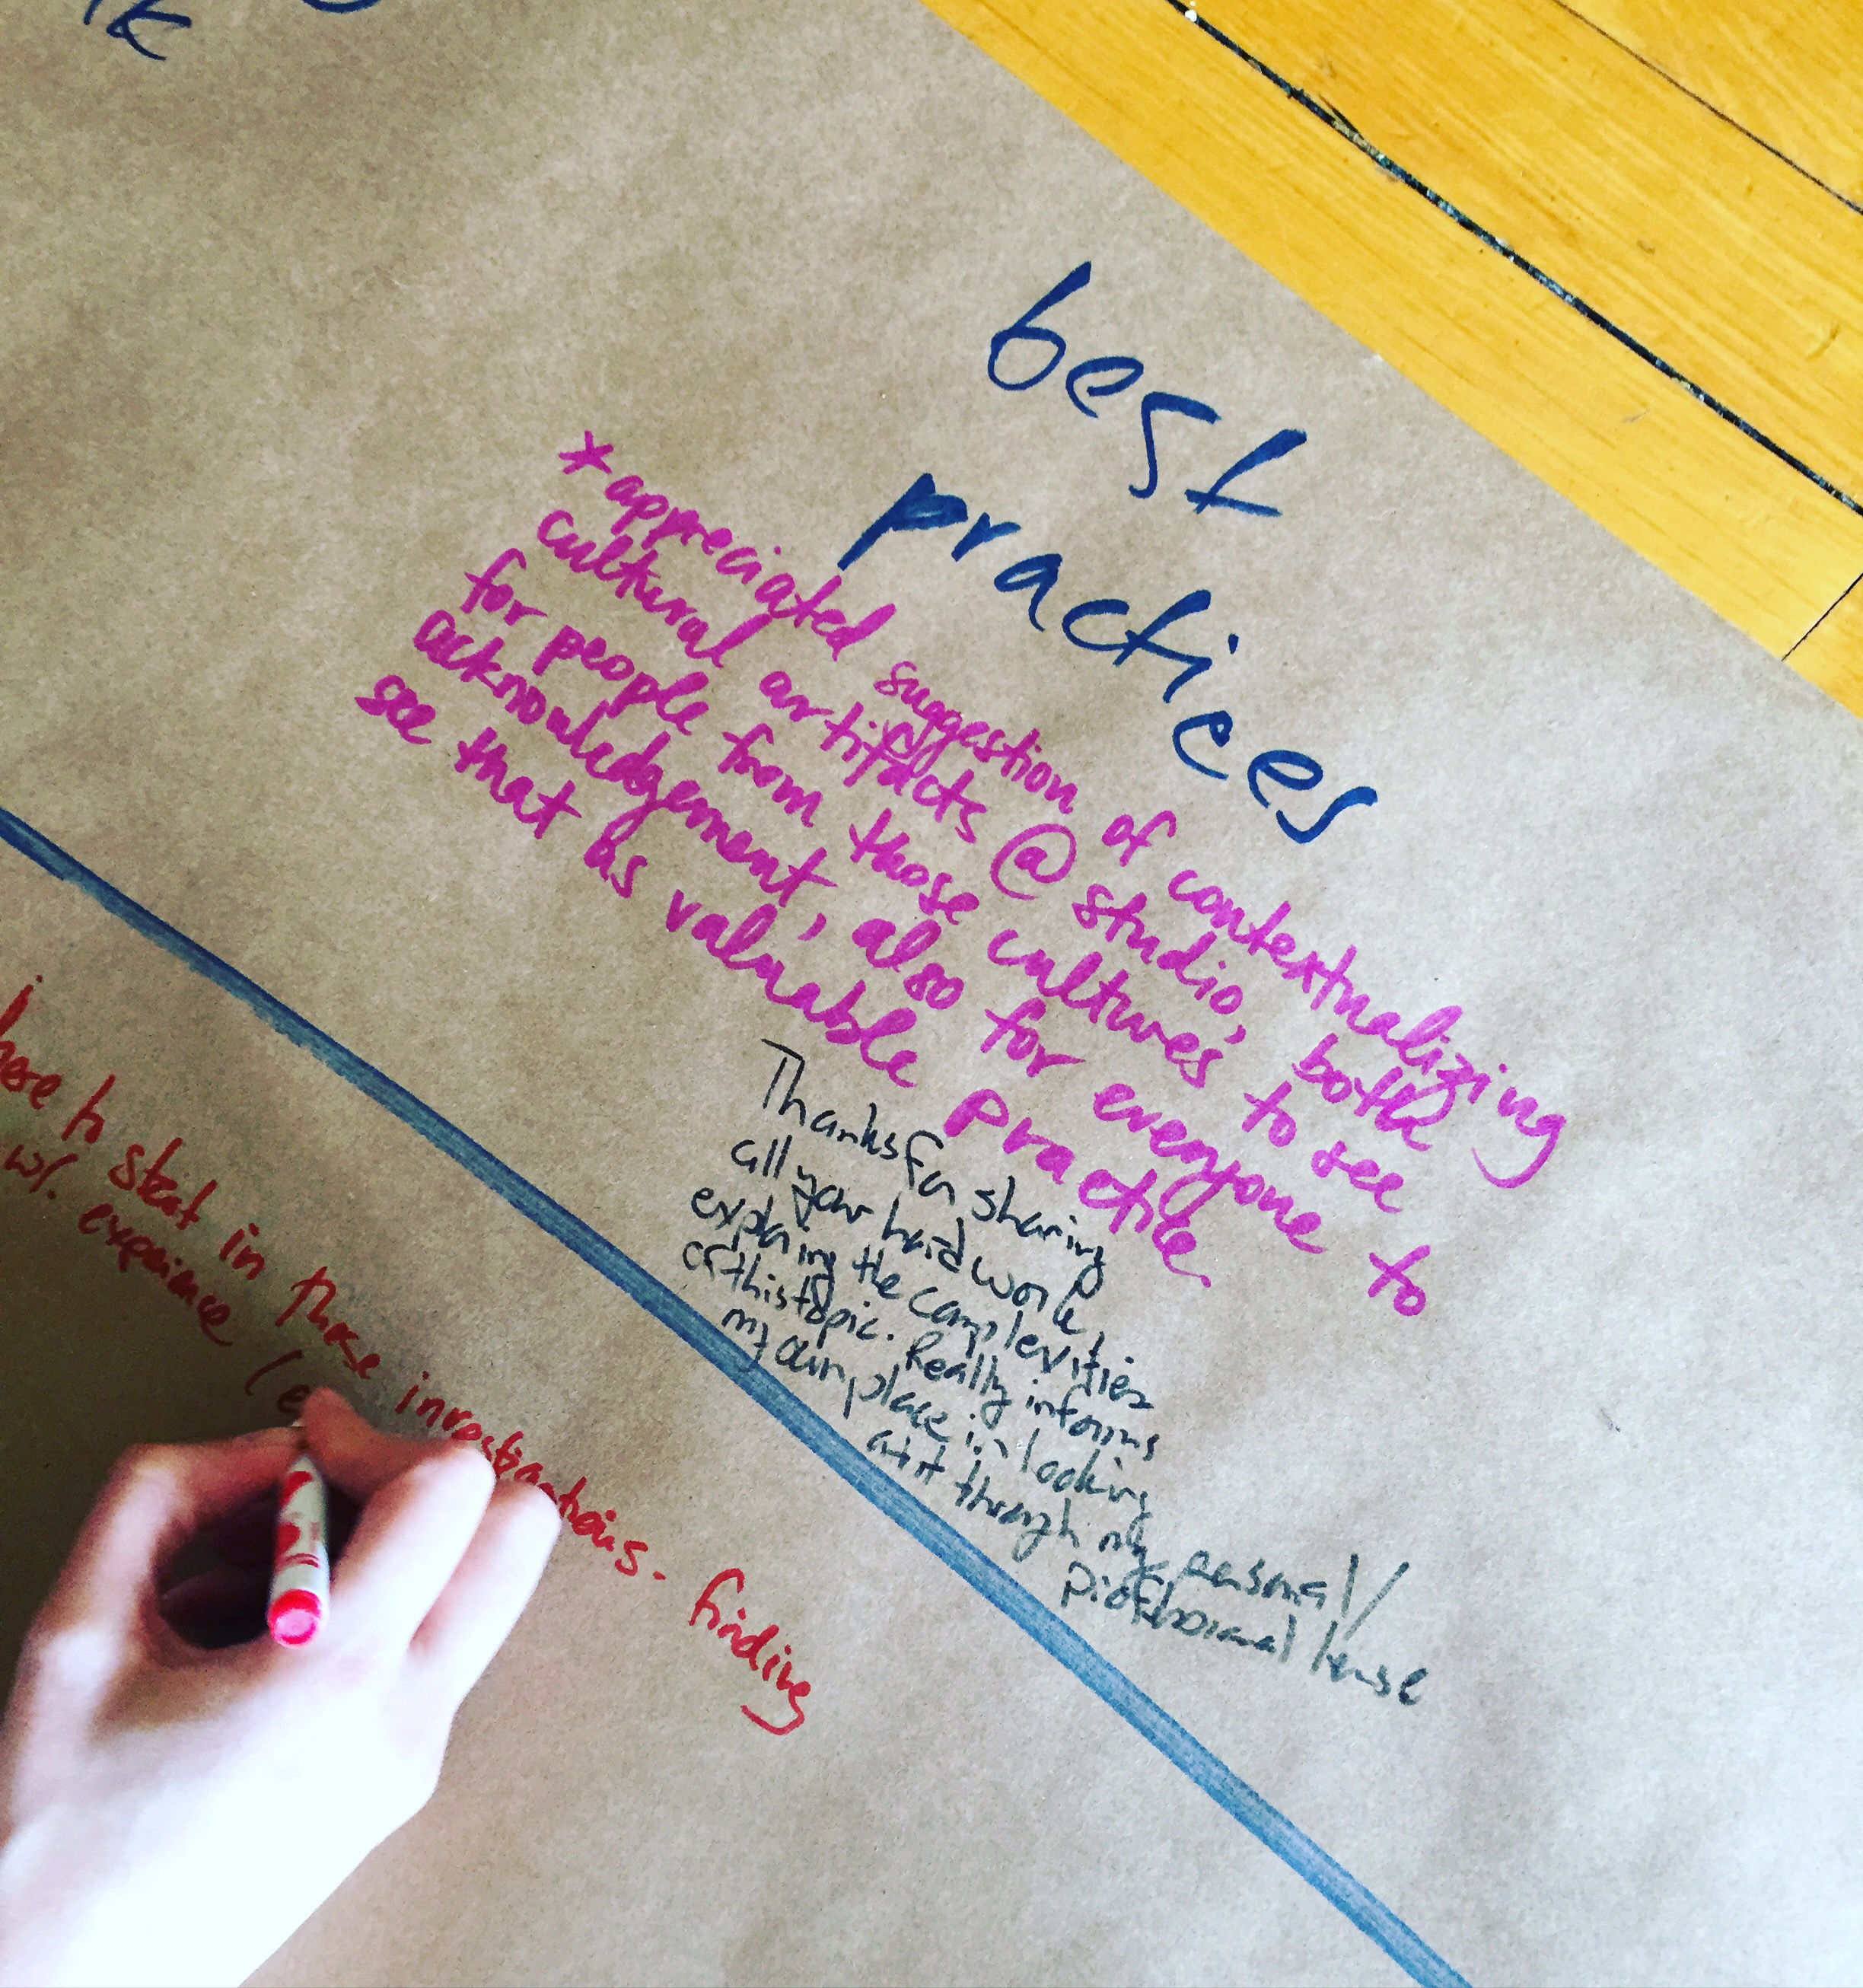 best
practices
* appreciated suggestion of contextualizing
cultural artifacts @ studio, both
for people from those cultures to see
acknowledgement, also for everyone to
see that as valuable practice.
Thanks for sharing
all your hard work,
exploring the complexities
of this topic. Really informs
my own place in looking
at it through my personal/
professional lense
to start in those investigations - finding
w/. experience (e